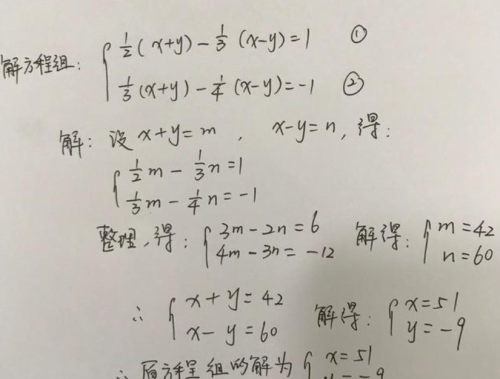 解方程组: { 1/2(x+y) - 1/3(x-y) = 1 ①
1/3(x+y) - 1/4(x-y) = -1 ②
解: 设 x+y=m, x-y=n, 得:
{ 1/2m - 1/3n = 1
1/3m - 1/4n = -1
整理, 得: { 3m-2n=6 解得: { m=42
4m-3n=-12 n=60
∴ { x+y=42 解得: { x=51
x-y=60 y=-9
∴ 原方程组的解为 { x=51
y=-9